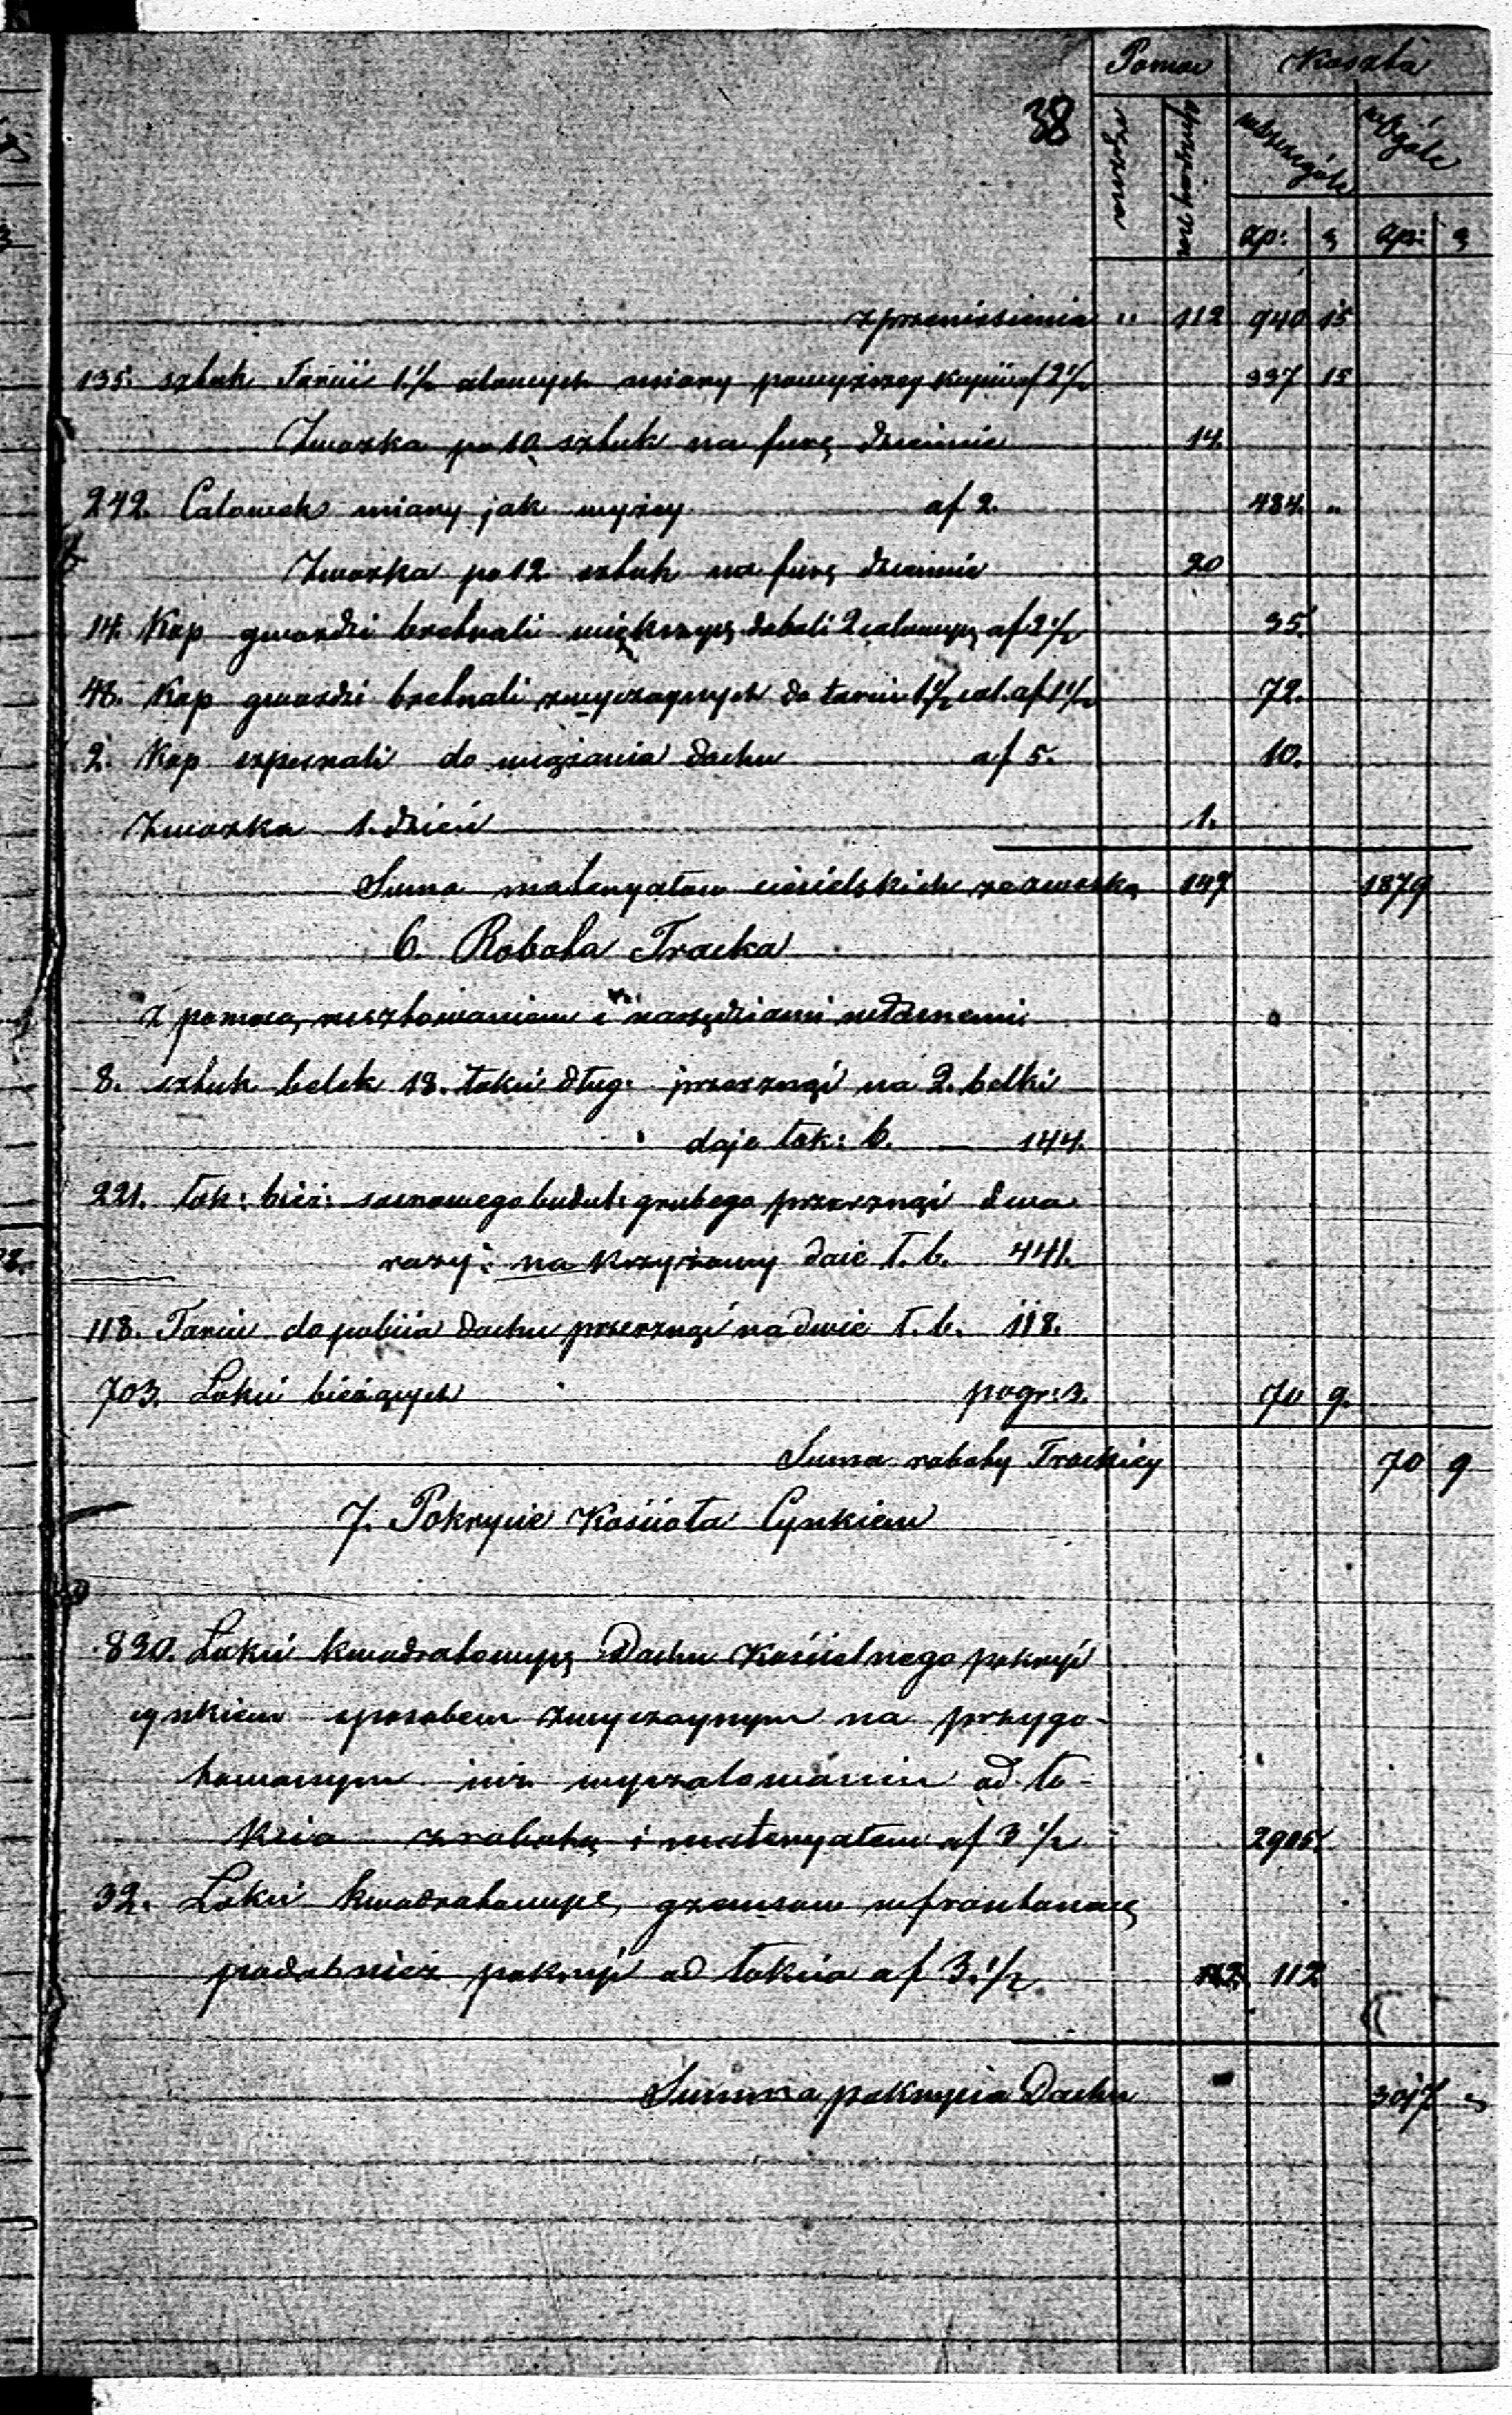 Pomoc Koszta
38
ręczna sprzężay na
wszczególe wogóle
Zp: g Zp: g
z przeniesienia " 112 940 15
135. sztuk Tarcic 1 1/2 calowych miary powyższey kupić af 2 1/2 337 15
Zwozka po 10 sztuk na furę dziennie 14.
242. Calowek miary jak wyżey af 2. 484. "
Zwozka po 12 sztuk na furę dziennie 20
14. Kop gwoździ bretnali większych do bali 2 calowych af 2 1/2 35.
48. Kop gwoździ bretnali zwyczaynych do tarcic 1 1/2 cal. af 1 1/2 72.
2. Kop szpernali do wiązania dachu af 5. 10.
Zwozka 1. dzień 1.
Suma materyałow ciesielskich ze zwozką 147 1879
6. Robota Tracka
z pomocą, rusztowaniem i narzędziami własnemi
8. sztuk belek 18. łokci dług: przerznąć na 2. belki
daje łok: b. 144.
221. łok: bież: sosnowego budul: grubego przerznąć dwa
razy: na krzyżowy daie ł. b. 441.
118. Tarcic do pobicia dachu przerznąć na dwie ł. b. 118.
703. Łokci bieżących po gr: 3. 70 9.
Suma roboty Trackiey 70 9
7. Pokrycie Kościoła Cynkiem
830. Łokci kwadratowych Dachu Kościelnego pokryć
cynkiem sposobem zwyczaynym na przygo-
towanym iuż wyszalowaniu od ło-
kcia z robotą i materyałem af 3 1/2 2905.
32. Łokci kwadratowych gzemsow wfrontonach
podobnież pokryć od łokcia af 3. 1/2 112
Summa pokrycia Dachu 3017 "